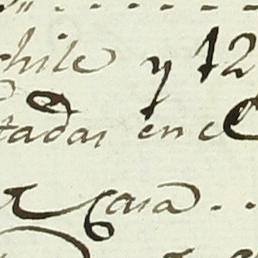 hile y 12
tadas en el
Casa